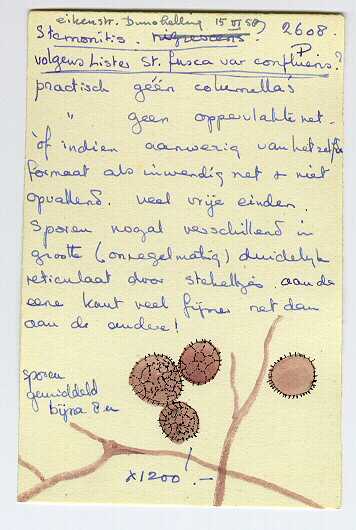 eikenstr. Dunohelling 15 VI 58
2608.
Stemonitis. nigrescens?
volgens Lister St. fusca var confluens?
practisch géén columella's
" geen oppervlakte net.
of indien aanwezig van hetzelfde
formaat als inwendig net & niet
opvallend. veel vrije einden.
Sporen nogal verschillend in
grootte (onregelmatig) duidelijk
reticulaat door stekeltjes aan de
eene kant veel fijner net dan
aan de andere!
sporen
gemiddeld
bijna 8 u
x1200